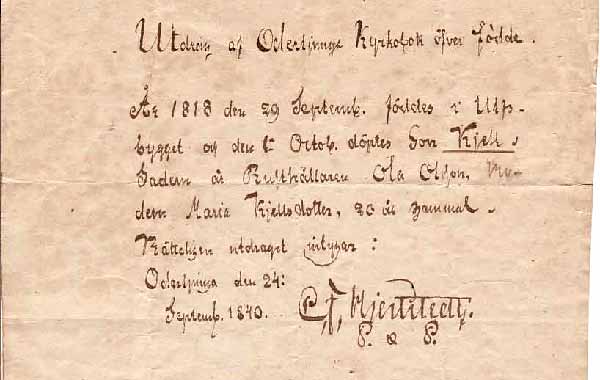 Utdrag af Oderljunga Kyrkobok öfver födde.
År 1818 den 29 Septemb. föddes i Ulfs-
bygget og den 1 Octob. döptes Son Kjell.
Fadern är Rusthållaren Ola Olson, Mo-
dern Maria Kjellsdotter, 23 år gammal.
Rättelsen utdraget intygar:
Oderljunga den 24:
Septemb. 1840.
P. & P.